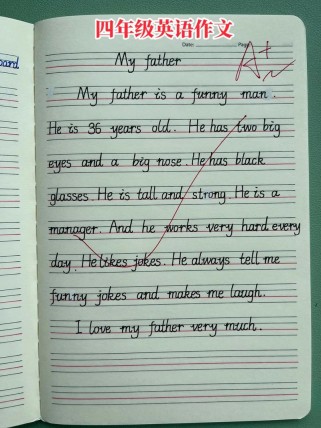 四年级英语作文
Date:
Page:
A+
oard
My father
My father is a funny man.
He is 36 years old. He has two big
eyes and a big nose. He has black
glasses. He is tall and strong. He is a
manager. And he works very hard every
day. He likes jokes. He always tell me
funny jokes and makes me laugh.
I love my father very much.